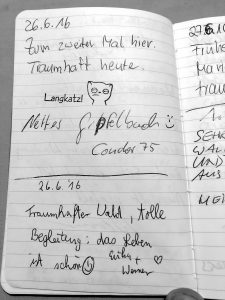 26.6.16
Zum zweiten Mal hier.
Traumhaft heute.
Langkatz!
Nettes Gipfelbuch
Condor 75
26.6.'16
Traumhafter Wald, tolle
Begleitung: das Leben
ist schön
+
Werner
27.6.1
Frühe
Mari
trau
1.
SEHR
WAL
UND
AUS